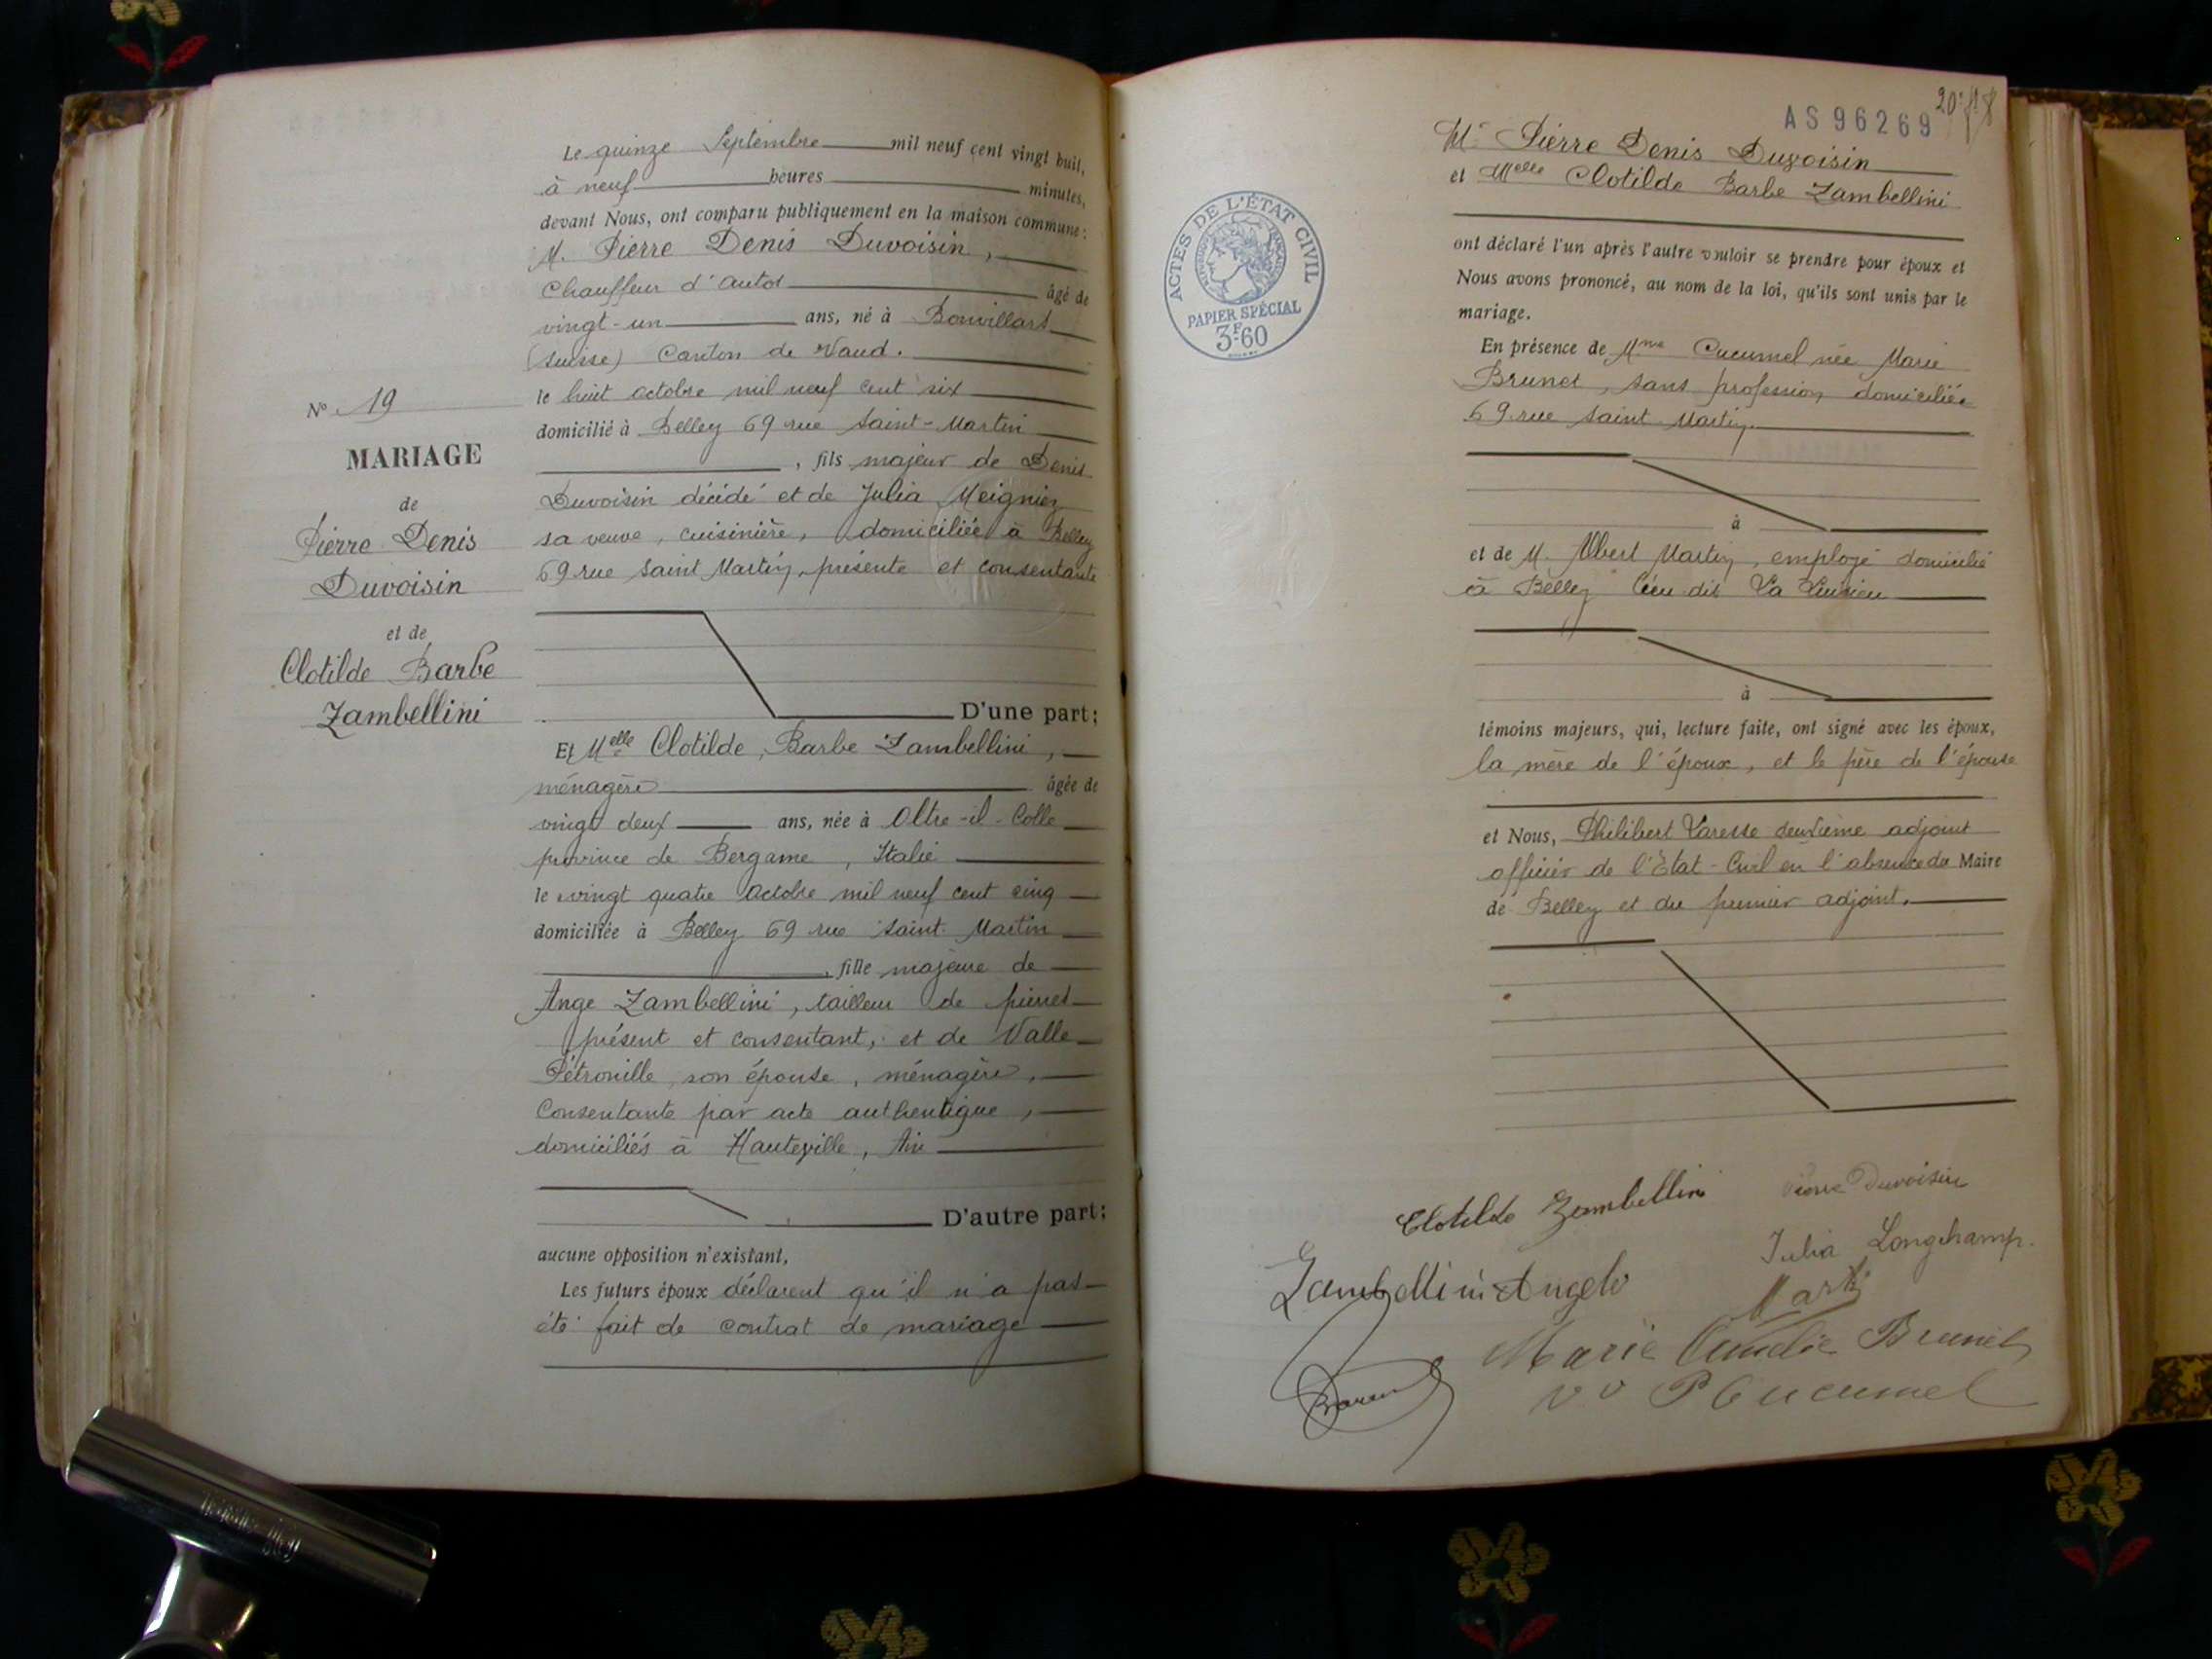 Le quinze Septembre mil neuf cent vingt huit,
à neuf heures minutes,
devant Nous, ont comparu publiquement en la maison commune :
M. Pierre Denis Duvoisin,
Chauffeur d'autos âgé de
vingt-un ans, né à Bonvillars
(Suisse) Canton de Vaud.
le huit octobre mil neuf cent six
domicilié à Belley 69 rue Saint-Martin
, fils majeur de Denis
Duvoisin décédé et de Julia Meignier
sa veuve, cuisinière, domiciliée à Belley
69 rue Saint Martin, présente et consentante
D'une part;
Et Melle Clotilde, Barbe Zambellini,
ménagère âgée de
vingt deux ans, née à Oltre-il-Colle
province de Bergame, Italie
le vingt quatre Octobre mil neuf cent cinq
domiciliée à Belley 69 rue Saint Martin
, fille majeure de
Ange Zambellini, tailleur de pierres
présent et consentant, et de Valle
Pétronille, son épouse, ménagère,
Consentante par acte authentique,
domiciliés à Hauteville, Ain
D'autre part;
aucune opposition n'existant,
Les futurs époux déclarent qu'il n'a pas
été fait de contrat de mariage
No 19
MARIAGE
de
Pierre Denis
Duvoisin
et de
Clotilde Barbe
Zambellini
AS96269
ACTES DE L'ÉTAT CIVIL
PAPIER SPÉCIAL
3F.60
Mr Pierre Denis Duvoisin
et Melle Clotilde Barbe Zambellini
ont déclaré l'un après l'autre vouloir se prendre pour époux et
Nous avons prononcé, au nom de la loi, qu'ils sont unis par le
mariage.
En présence de Mme Cucumel née Marie
Brunet, sans profession domiciliée
69 rue Saint Martin.
à
et de M. Albert Martin, employé domicilié
à Belley lieu dit La
à
témoins majeurs, qui, lecture faite, ont signé avec les époux,
la mère de l'époux, et le père de l'épouse
et Nous, Philibert Varesse deuxième adjoint
officier de l'Etat-Civil en l'absence du Maire
de Belley et du premier adjoint.
Clotilde Zambellini
Pierre Duvoisin
Julia Longchamp.
Zambellini Angelo
Marie Brunet
Vv Cucumel